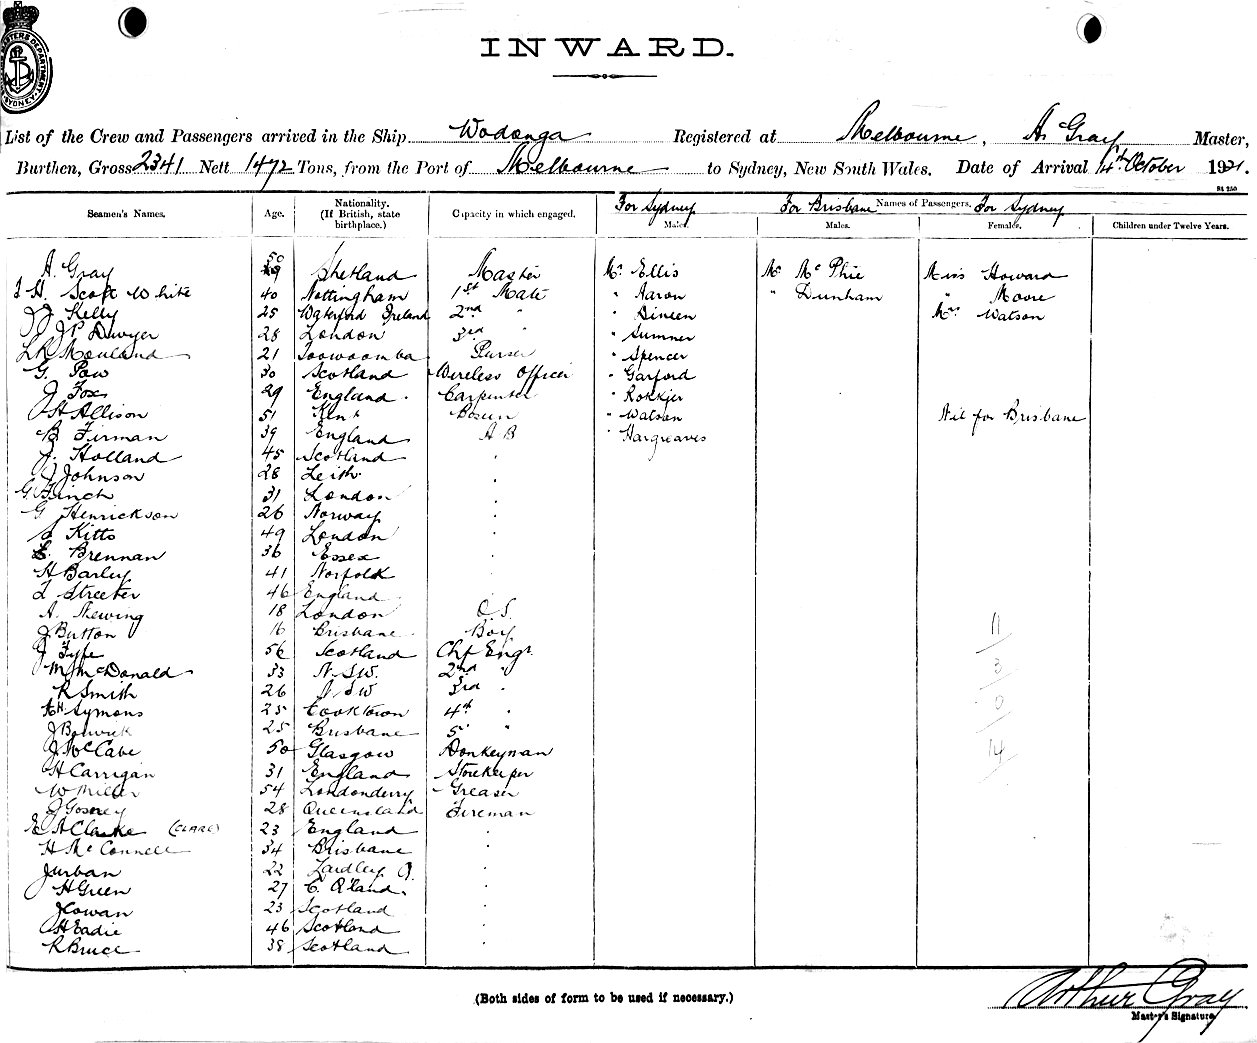 INWARD.
MASTERS DEPARTMENT SYDNEY
List of the Crew and Passengers arrived in the Ship Wodonga Registered at Melbourne, A. Gray Master,
Burthen, Gross 2341 Nett 1472 Tons, from the Port of Melbourne to Sydney, New South Wales. Date of Arrival 14th October 1921.
Seamen's Names. Age. Nationality. (If British, state birthplace.) Capacity in which engaged. Names of Passengers.
For Sydney Males. For Brisbane Males. For Sydney Females. Children under Twelve Years.
A. Gray 50 Shetland Master Mr. Ellis Mr McPhie Miss Howard
H. Scott White 40 Nottingham 1st Mate " Aaron " Dunham " Moore
J. Kelly 25 Waterford Ireland 2nd " " Mrs Watson
J P Dwyer 28 London 3rd " " Sumner
21 Toowoomba Purser " Spencer
G. Pow 30 Scotland Wireless Officer " Garford
J Fox 29 England. Carpenter " Rokkjer
H Allison 51 Kent Bosun " Watson Nil for Brisbane
B Firman 39 England A B " Hargreaves
J. Holland 45 Scotland "
J Johnson 28 Leith "
G. Finch 31 London "
G Henrickson 26 Norway "
J Kitts 49 London "
Brennan 36 Essex "
H Barley 41 Norfolk "
Streeter 46 England
A. Newing 18 London O.S.
J Button 16 Brisbane Boy 11
J Fyfe 56 Scotland Chf Engr.
M McDonald 33 N.S.W. 2nd " 3
R Smith 26 N S W 3rd "
Symons 25 Cooktown 4th " 0
J Borwick 25 Brisbane 5 "
J McCabe 50 Glasgow Donkeyman 14
H Carrigan 31 England Storekeeper
W Miller 54 Londonderry Greaser
J Gosney 28 Queensland Fireman
E A Clarke (CLARE) 23 England "
H McConnell 34 Brisbane "
J Urban 22 "
H Green 27 "
J Cowan 23 Scotland "
H Eadie 46 Scotland "
R Bruce 38 Scotland "
(Both sides of form to be used if necessary.)
Arthur Gray
Master's Signature.